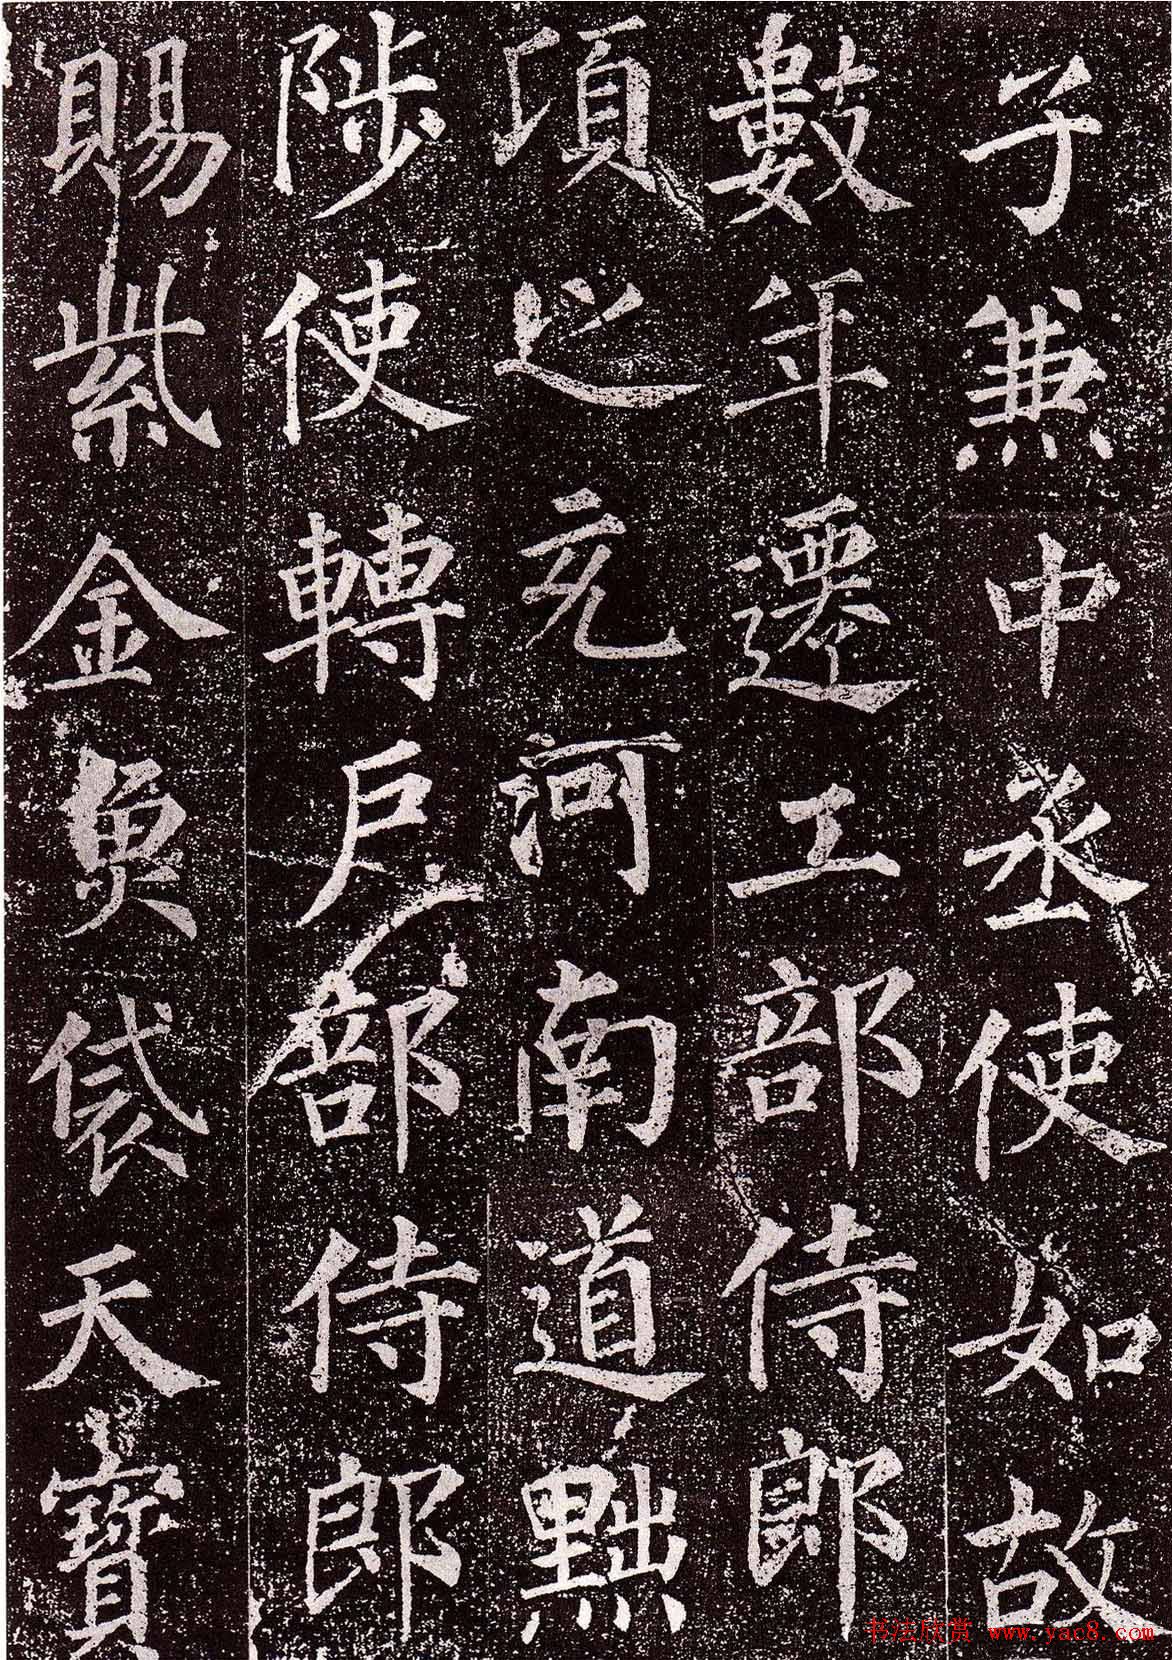 子兼中丞使如故
數年遷工部侍郎
頃之充河南道黜
陟使轉戶部侍郎
賜紫金魚袋天寶
书法欣赏 www.yac8.com